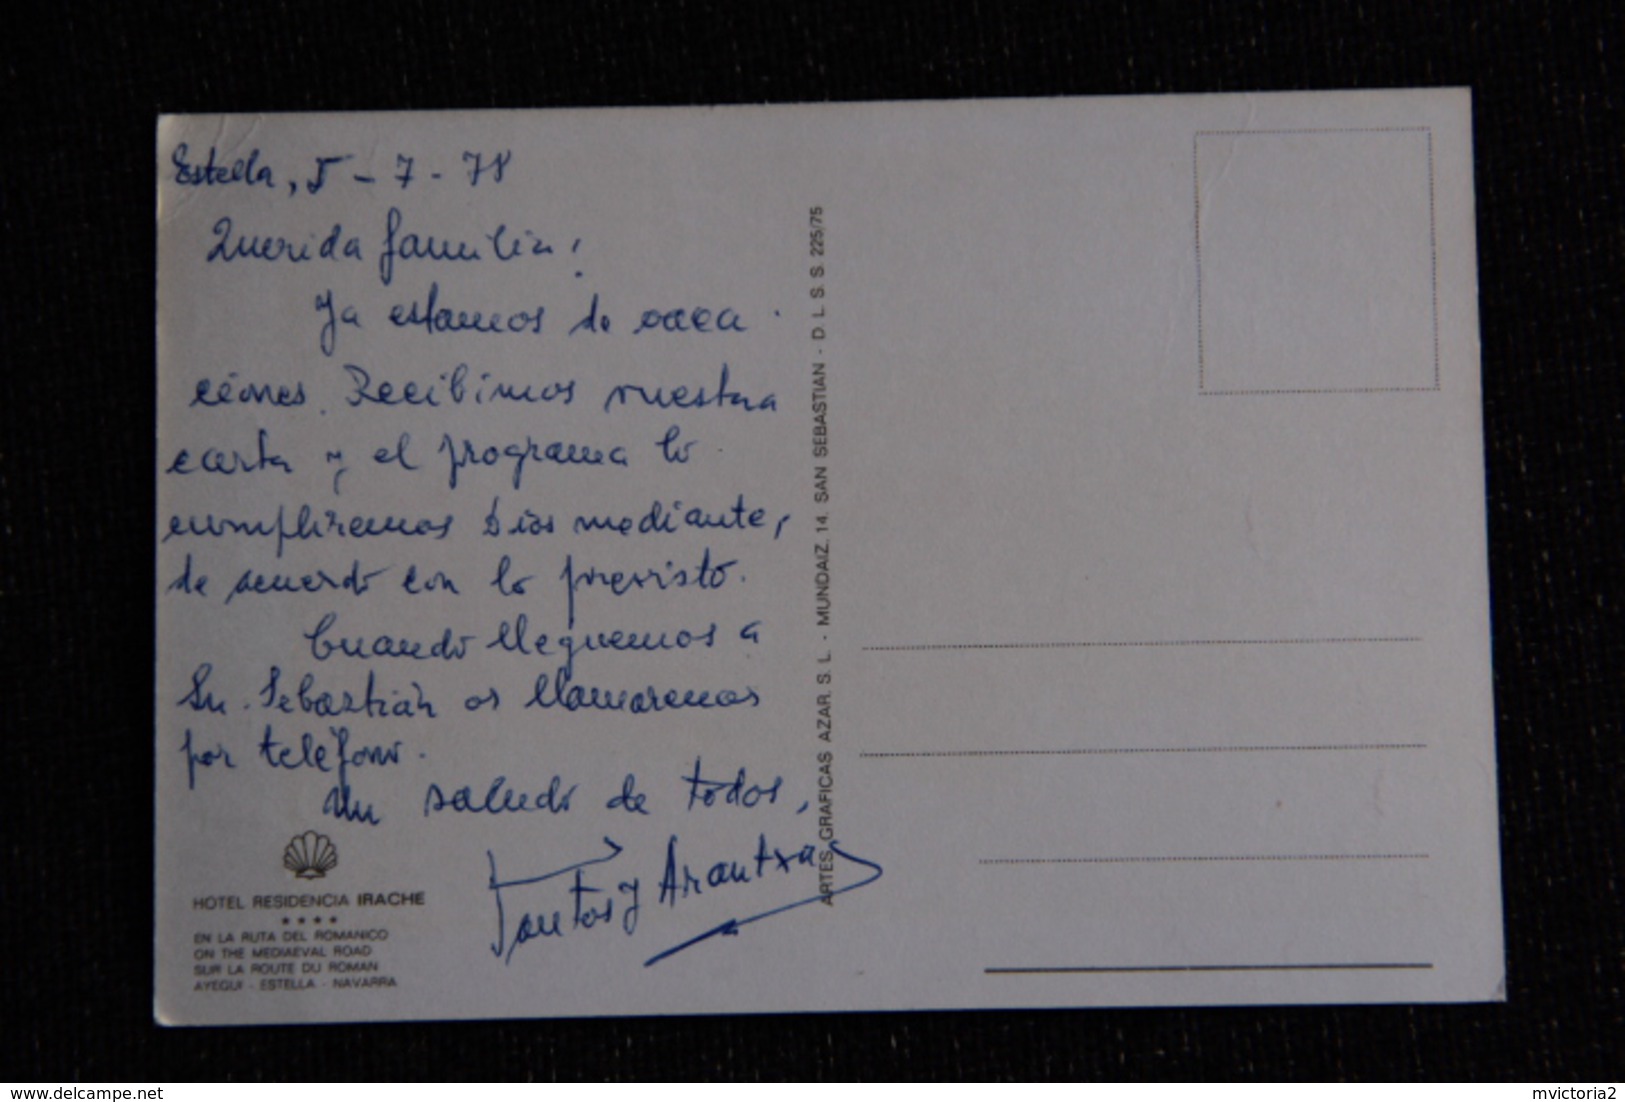 Estella, 5-7-78
Querida familia:
Ya estamos de vaca-
ciones. Recibimos vuestra
carta y el programa lo
cumpliremos Dios mediante,
de acuerdo con lo previsto.
Cuando lleguemos a
Sn. Sebastián os llamaremos
por teléfono.
Un saludo de todos,
Santos y Arantxa
HOTEL RESIDENCIA IRACHE
****
EN LA RUTA DEL ROMANICO
ON THE MEDIAEVAL ROAD
SUR LA ROUTE DU ROMAN
AYEGUI - ESTELLA - NAVARRA
ARTES GRAFICAS AZAR. S. L. - MUNDAIZ, 14. SAN SEBASTIAN - D L. S. S. 225/75
delcampe.net
mvictoria2